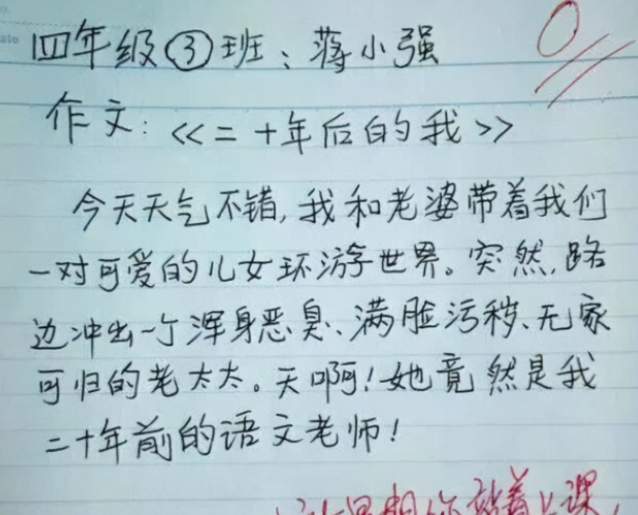 四年级③班：蒋小强
0
作文：《二十年后的我》
今天天气不错，我和老婆带着我们
一对可爱的儿女环游世界。突然，路
边冲出一个浑身恶臭、满脸污秽、无家
可归的老太太。天啊！她竟然是我
二十年前的语文老师！
你站着上课，